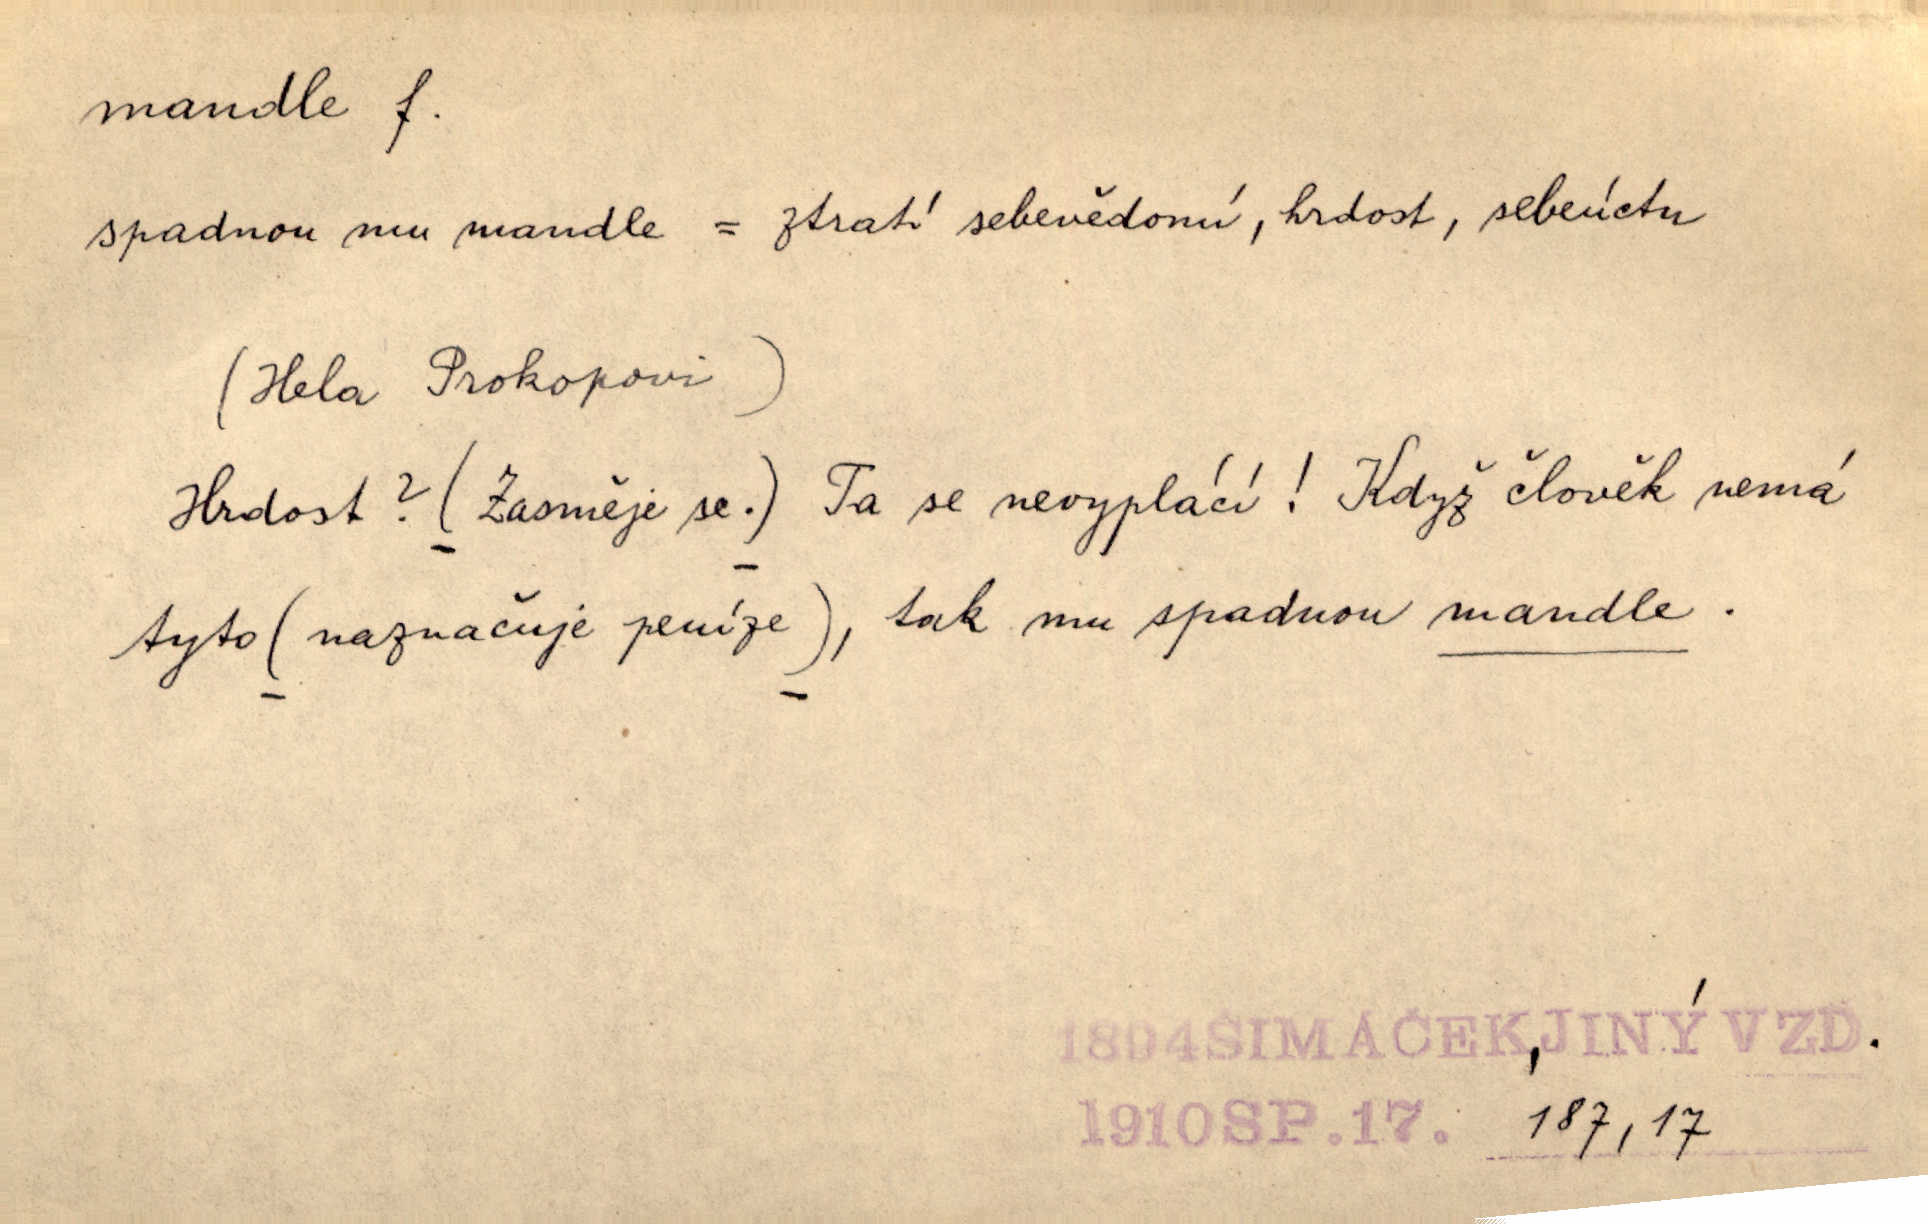 mandle f.
spadnou mu mandle = ztratí sebevědomí, hrdost, sebeúctu
(Hela Prokopovi)
Hrdost? (Zasměje se.) Ta se nevyplácí! Když člověk nemá
tyto (naznačuje peníze), tak mu spadnou mandle.
1894 ŠIMÁČEK, JINÝ VZD.
1910 SP. 17. 187, 17